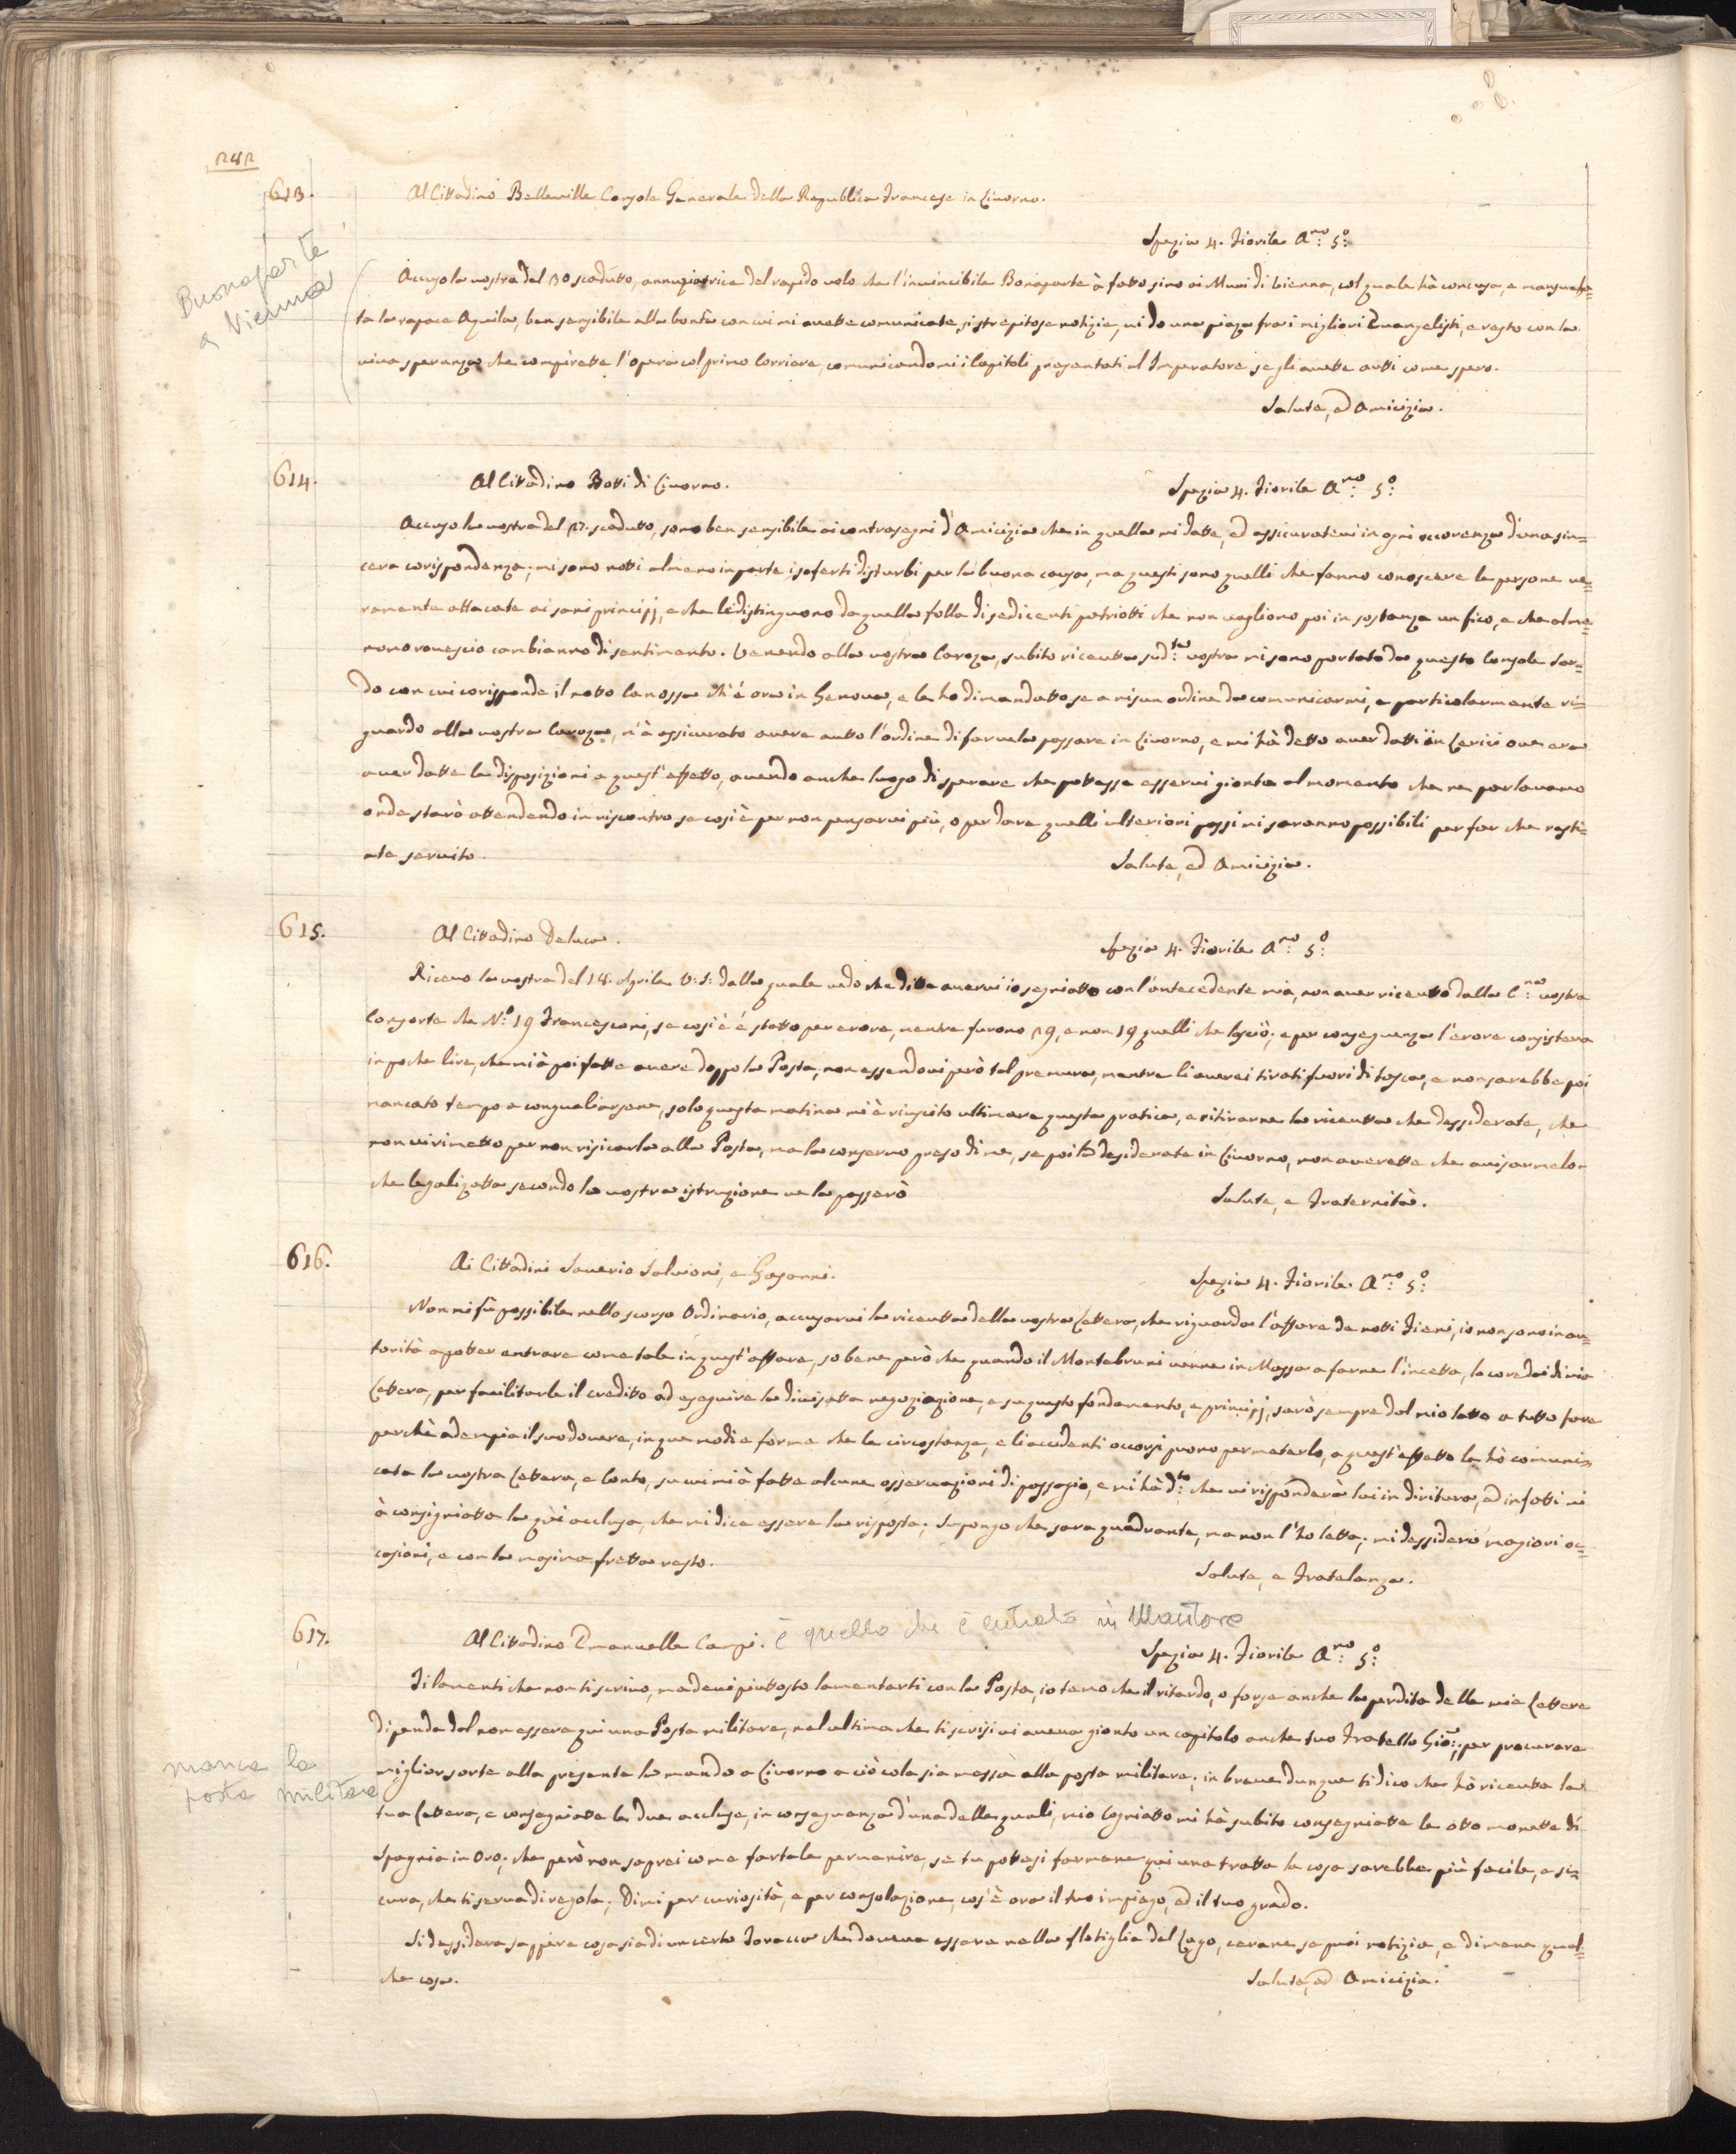 242
613. Al Cittadino Belleville Console Generale della Republica Francese in Livorno.
Spezia 4. Fiorile A.no 5.o
Buonaparte
a Vienna
Accuso la vostra del 30 scadutto, annuziatrice del rapido volo che l'invincibile Bonaparte à fatto sino ai Muri di Vienna, col quale hà concusa, e mansueffa=
ta la rapace Aquila, ben sensibile alla bontà con cui mi avette comunicate sì strepitose notizie, vi do una piaza fra i migliori Evangelisti, e resto con la
viva speranza che compirette l'opera col primo Corriere, comunicandomi i Capitoli presentati al Imperatore se gli avette autti come spero.
Salute, ed Amicizia.
614. Al Cittadino Botti di Livorno.
Spezia 4. Fiorile A.no 5.o
Accuso la vostra del 27. scadutto, sono ben sensibile ai contrasegni d'Amicizia che in quella mi datte, ed assicuratevi in ogni occorenza d'una sin=
cera corispondenza; mi sono notti almeno in parte i soferti disturbi per la buona causa, ma questi sono quelli che fanno conoscere le persone ve=
ramente attacate ai sani principj, e che le distinguono da quella folla di sedicenti patriotti che non vagliono poi in sostanza un fico, e che al me=
nomo rovescio cambianno di sentimento. Venendo alla vostra Caroza, subito ricevuta sud.ta vostra mi sono portato da questo Console Sar=
do con cui corisponde il notto Canossa ch'è ora in Genova, e le ho dimandatto se a nisun ordine da comunicarmi, e particolarmente ri=
guardo alla vostra Caroza, m'à assicurato avere autto l'ordine di farvela passare in Livorno, e mi hà detto aver datti in Lerici ove era
aver datte le disposizioni a quest'effetto, avendo anche luogo di sperare che pottesse esservi gionta al momento che ne parlavamo
onde starò attendendo in riscontro se così è per non pensarvi più, o per dare quelli ulteriori passi mi saranno possibili per far che resti=
ate servito.
Salute, ed Amicizia.
615. Al Cittadino Deluca.
Spezia 4. Fiorile A.no 5.o
Ricevo la vostra del 14. Aprile V: S: dalla quale vedo che ditte avervi io segniatto con l'antecedente mia, non aver ricevutto dalla C.na vostra
Consorte che N.o 19 Francesconi, se così è è statto per erore, mentre furono 29, e non 19 quelli che lasciò; e per conseguenza l'erore consisteva
in poche lire, che mi à poi fatte avere doppo la Posta, non essendovi però tal premura, mentre li averei tirati fuori di tasca, e non sarebbe poi
mancato tempo a congualiarsene, solo questa matina mi è riuscito ultimare questa pratica, e ritirarne la ricevuta che dessiderate, che
non vi rimetto per non risicarla alla Posta, ma la conservo preso di me, se poi la desiderate in Livorno, non averette che avisarmelo
che legalizatta secondo la vostra istruzione ve la passerò
Salute, e Fraternità.
616. Ai Cittadini Saverio Salvioni, e Gasanni.
Spezia 4. Fiorile A.no 5.o
Non mi fù possibile nello scorso Ordinario, accusarvi la ricevutta della vostra Lettera, che riguarda l'affare de notti Fieni, io non sono in au=
torità a potter entrare come tale in quest'affare, so bene però che quando il Montebruni venne in Massa a farne l'incetta, lo coredai di mia
Lettera, per facilitarle il creditto ad eseguire la divisatta negoziazione, e su questo fondamento, e principj, sarò sempre dal mio latto a tutto fare
perchè adempia il suo dovere, in que modi e forme che le circostanze, e li accidenti occorsi puono permeterlo, a quest'effetto le hò comuni=
cata la vostra Lettera, e Conto, su cui mi à fatte alcune osservazioni di passagio, e mi hà d.to che vi rispponderà lui in diritura, ed infatti mi
à consigniatto la quì acclusa, che mi dice essere la risposta; Supongo che sara quadrante, ma non l'ho letta; mi dessidero magiori oc=
casioni, e con la masima fretta resto.
Salute, e Fratelanza.
617. Al Cittadino Emanuelle Campi. è quello che è entrato in Mantova
Spezia 4. Fiorile A.no 5.o
Ti lamenti che non ti scrivo, ma devi piuttosto lamentarti con la Posta, io temo che il ritardo, o forse anche la perdita delle mie Lettere
dipenda dal non essere qui una Posta militare, nel ultima che ti scrisi vi aveva gionto un capitolo anche tuo Fratello Gio:; per procurare
manca la
posta militare
miglior sorte alla presente la mando a Livorno a ciò colà sia messa alla posta militare; in breve dunque ti dico che hò ricevuta la
tua Lettera, e consegniatte le due accluse, in conseguenza d'una delle quali, mio Cogniatto mi hà subito consegniatte le otto monette di
Spagnia in Oro; che però non saprei come fartele pervenire, se tu pottesi farmene quì una tratta la cosa sarebbe più facile, e si=
cura, che ti serva di regola; Dimi per curiosità, e per consolazione, cos'è ora il tuo impiego, ed il tuo grado.
Si dessidera sappere cosa sia di un certo Foracco che doveva essere nella flotiglia del Lago, cerane se puoi notizia, e dimene qual=
che cosa.
Salute, ed Amicizia.